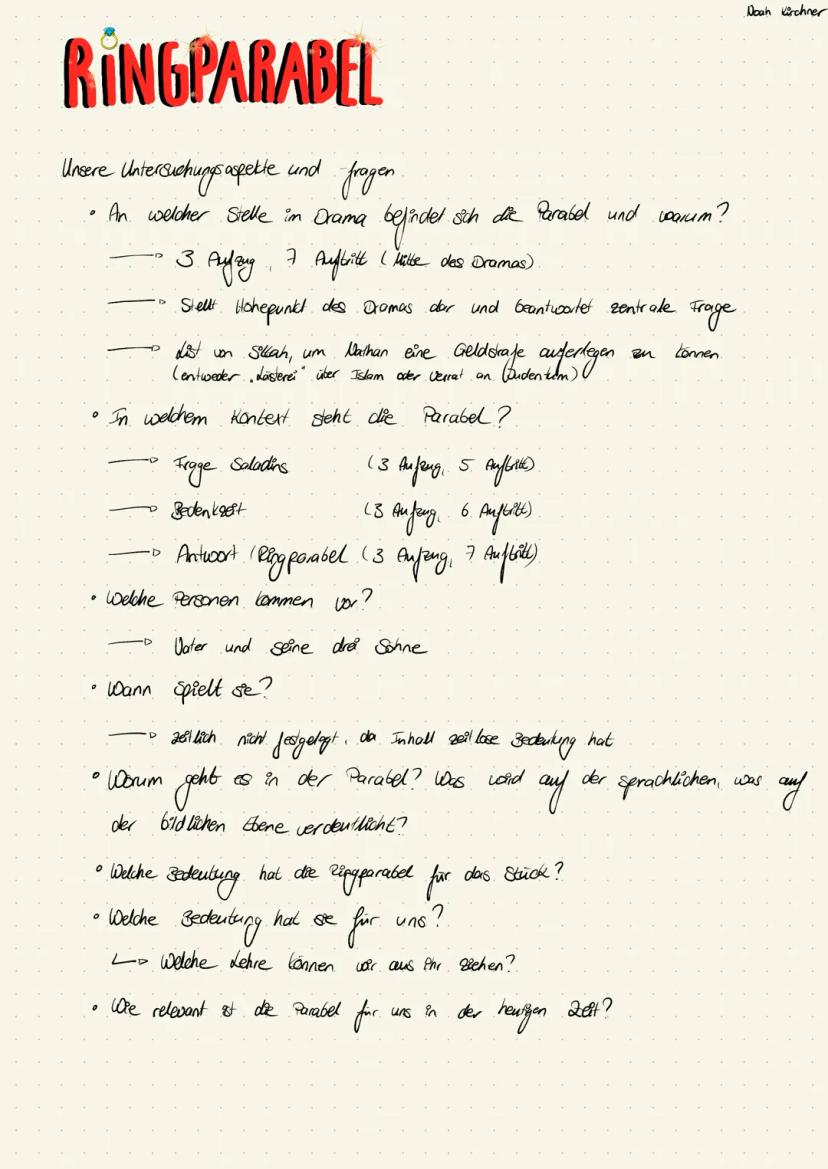 Noah Kirchner
RiNGPARABEL
Unsere Untersuchungsaspekte und -fragen
• An welcher Stelle im Drama befindet sich die Parabel und warum?
→ 3 Aufzug, 7 Auftritt (Mitte des Dramas)
→ Stellt Höhepunkt des Dramas dar und beantwortet zentrale Frage
→ List von Sittah, um Nathan eine Geldstrafe auferlegen zu können
(entweder „Lästerei" über Islam oder Verrat an Judentum)
• In welchem Kontext steht die Parabel?
→ Frage Saladins (3 Aufzug, 5 Auftritt)
→ Bedenkzeit (3 Aufzug, 6 Auftritt)
→ Antwort / Ringparabel (3 Aufzug, 7 Auftritt)
• Welche Personen kommen vor?
→ Vater und seine drei Söhne
• Wann spielt sie?
→ zeitlich nicht festgelegt, da Inhalt zeitlose Bedeutung hat
• Worum geht es in der Parabel? Was wird auf der sprachlichen, was auf
der bildlichen Ebene verdeutlicht?
• Welche Bedeutung hat die Ringparabel für das Stück?
• Welche Bedeutung hat sie für uns?
↳ Welche Lehre können wir aus ihr ziehen?
• Wie relevant ist die Parabel für uns in der heutigen Zeit?